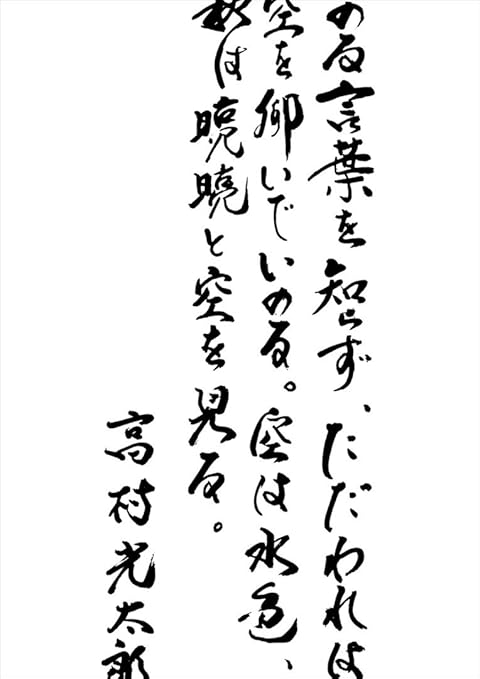 のる言葉を知らず、ただわれは
空を仰いでいのる。空は水色、
秋は曉曉と空を見る。
高村光太郎